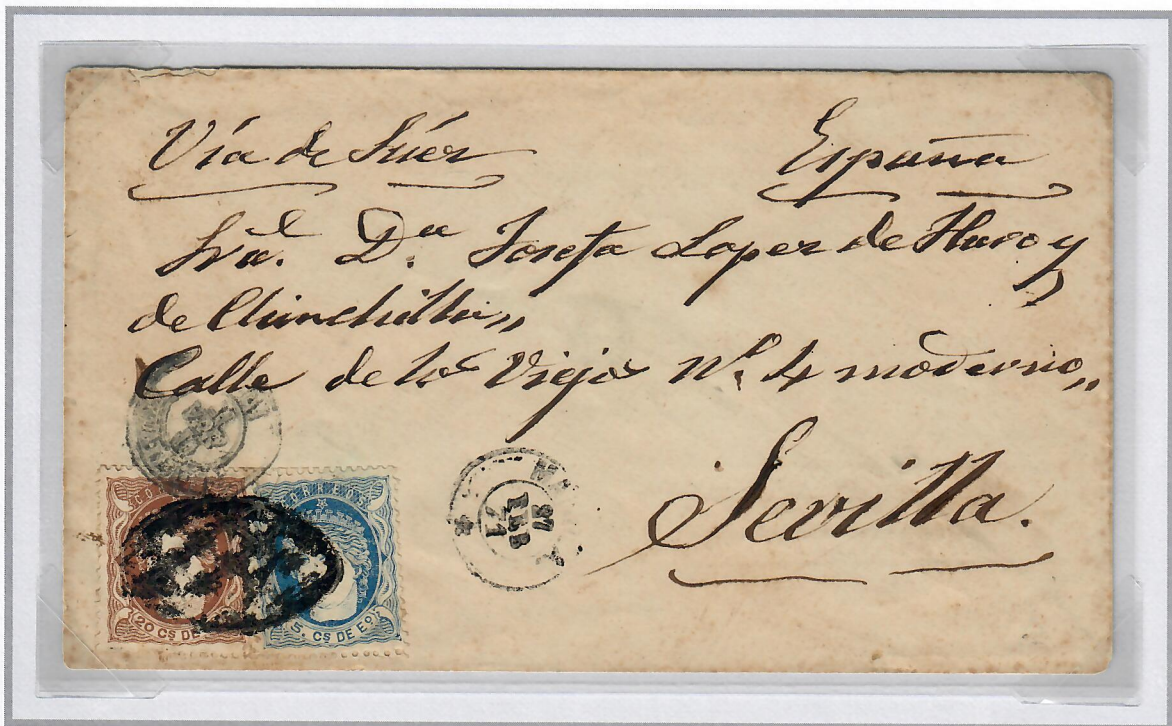 Vía de Súez
España
Sra. Da. Josefa Lopez de Haro y
de Chinchilla,,
Calle de los Viejos No. 4 moderno,,
Sevilla.
CORREOS
20 CS DE
5. CS DE Eº
27
FEB
71